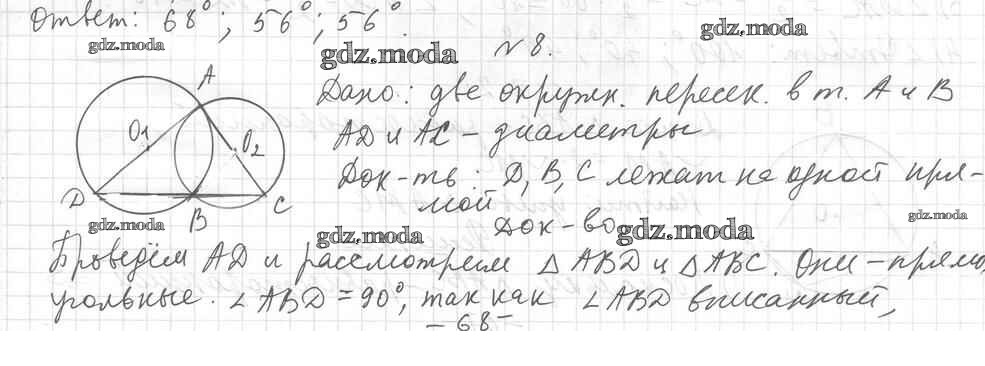 Ответ: 68°; 56°; 56°.
gdz.moda
gdz.moda
gdz.moda
№ 8.
A
O₁
O₂
D
B
C
Дано: две окружн. пересек. в т. A и B
AD и AC – диаметры
Док-ть: D, B, C лежат на одной пря-
мой
gdz.moda
gdz.moda
Док-во
gdz.moda
gdz.moda
Проведём AD и рассмотрим △ABD и △ABC. Они – прямо
угольные. ∠ABD = 90°, так как ∠ABD вписанный,
– 68 –